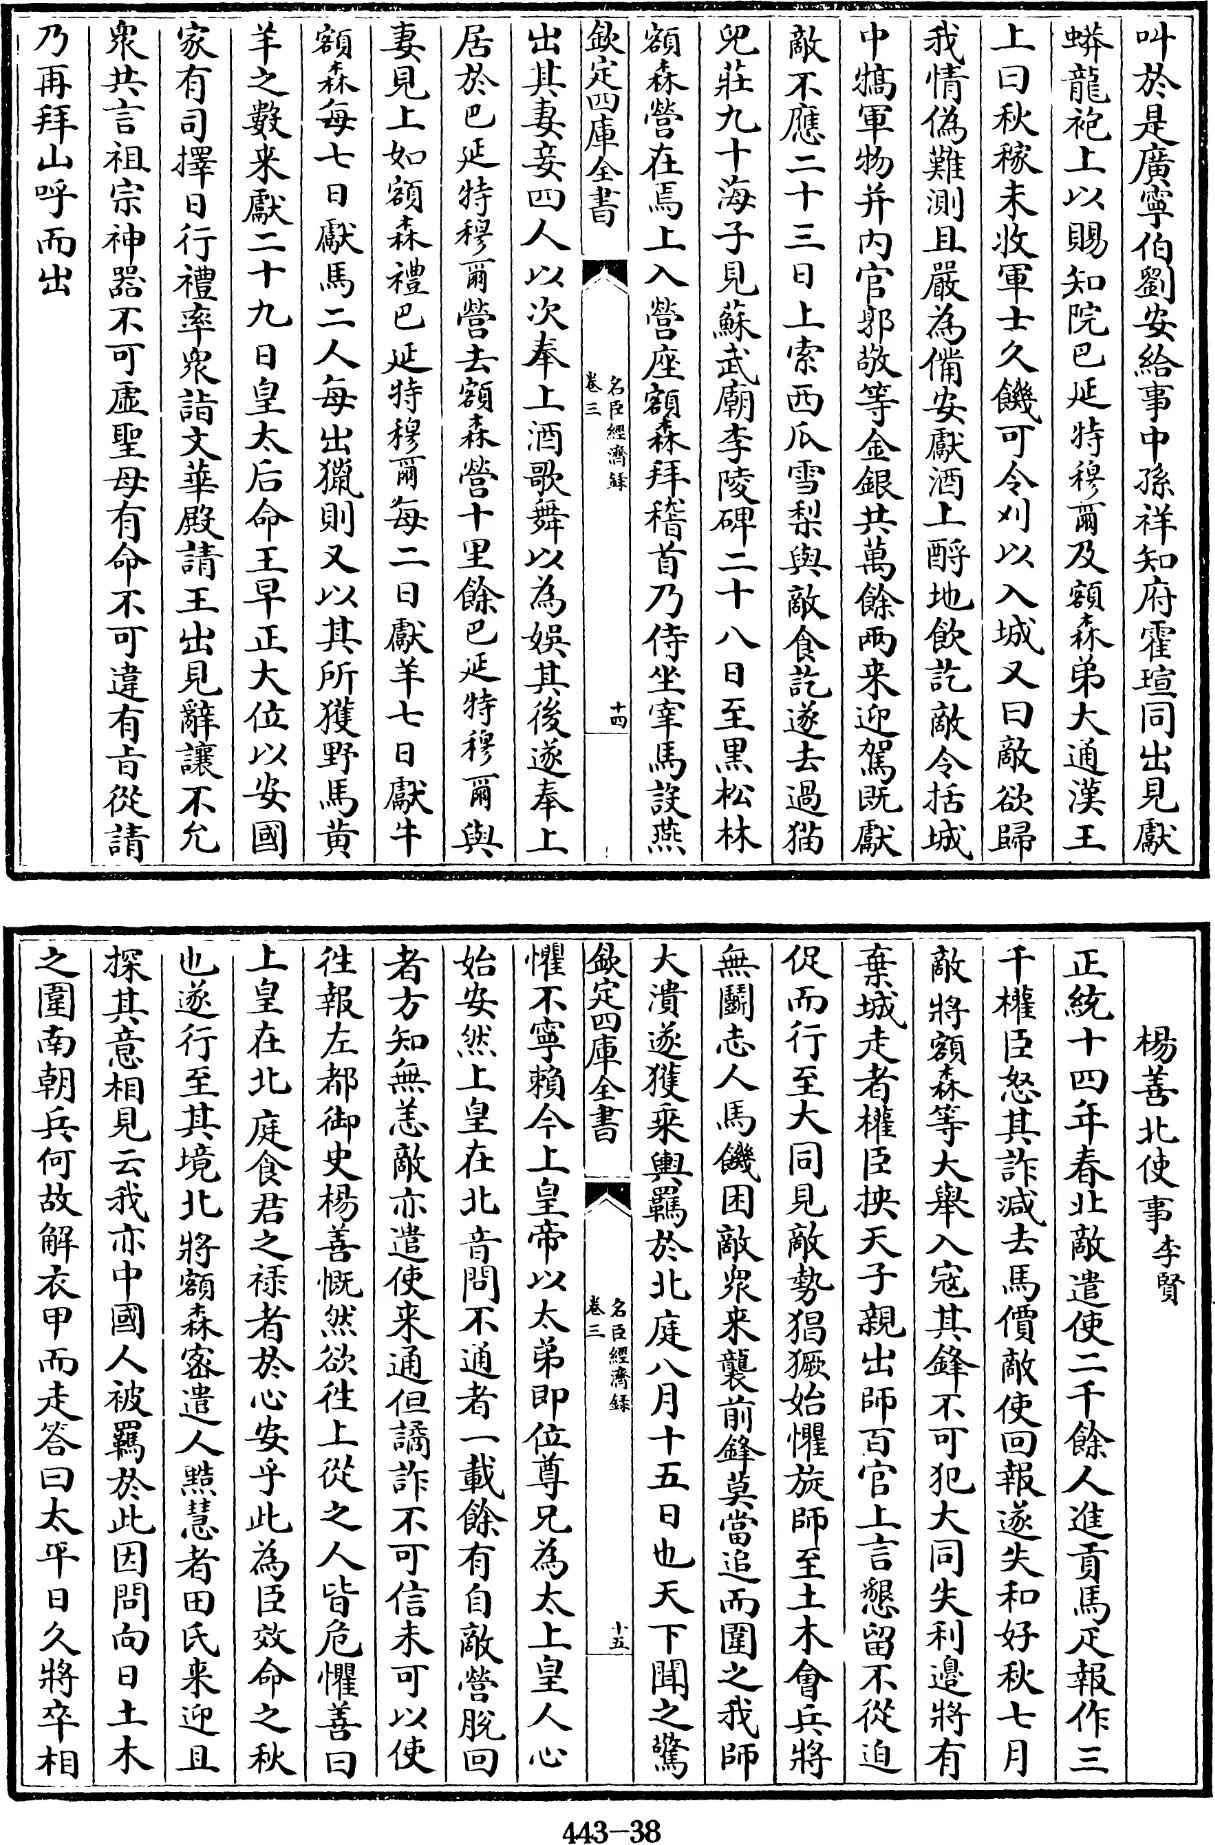 叫於是廣寧伯劉安給事中孫祥知府霍瑄同出見獻
蟒龍袍上以賜知院巴延特穆爾及額森弟大通漢王
上曰秋稼未收軍士久饑可令刈以入城又曰敵欲歸
我情偽難測且嚴為備安獻酒上酹地飲訖敵令括城
中犒軍物并內官郭敬等金銀共萬餘兩来迎駕既獻
敵不應二十三日上索西瓜雪梨與敵食訖遂去過猫
兒莊九十海子見蘇武廟李陵碑二十八日至黑松林
額森營在焉上入營座額森拜稽首乃侍坐宰馬設燕
欽定四庫全書
名臣經濟錄
卷三
十四
出其妻妾四人以次奉上酒歌舞以為娛其後遂奉上
居於巴延特穆爾營去額森營十里餘巴延特穆爾與
妻見上如額森禮巴延特穆爾每二日獻羊七日獻牛
額森每七日獻馬二人每出獵則又以其所獲野馬黃
羊之數来獻二十九日皇太后命王早正大位以安國
家有司擇日行禮率衆詣文華殿請王出見辭讓不允
衆共言祖宗神器不可虛聖母有命不可違有旨從請
乃再拜山呼而出
楊善北使事李賢
正統十四年春北敵遣使二千餘人進貢馬疋報作三
千權臣怒其詐減去馬價敵使回報遂失和好秋七月
敵將額森等大舉入寇其鋒不可犯大同失利邊將有
棄城走者權臣挾天子親出師百官上言懇留不從迫
促而行至大同見敵勢猖獗始懼旋師至土木會兵將
無鬭志人馬饑困敵衆来襲前鋒莫當追而圍之我師
大潰遂獲乘輿羈於北庭八月十五日也天下聞之驚
欽定四庫全書
名臣經濟錄
卷三
十五
懼不寧賴今上皇帝以太弟即位尊兄為太上皇人心
始安然上皇在北音問不通者一載餘有自敵營脫回
者方知無恙敵亦遣使来通但譎詐不可信未可以使
徃報左都御史楊善慨然欲徃上從之人皆危懼善曰
上皇在北庭食君之祿者於心安乎此為臣效命之秋
也遂行至其境北將額森密遣人黠慧者田氏来迎且
探其意相見云我亦中國人被羈於此因問向日土木
之圍南朝兵何故解衣甲而走答曰太平日久將卒相
443-38